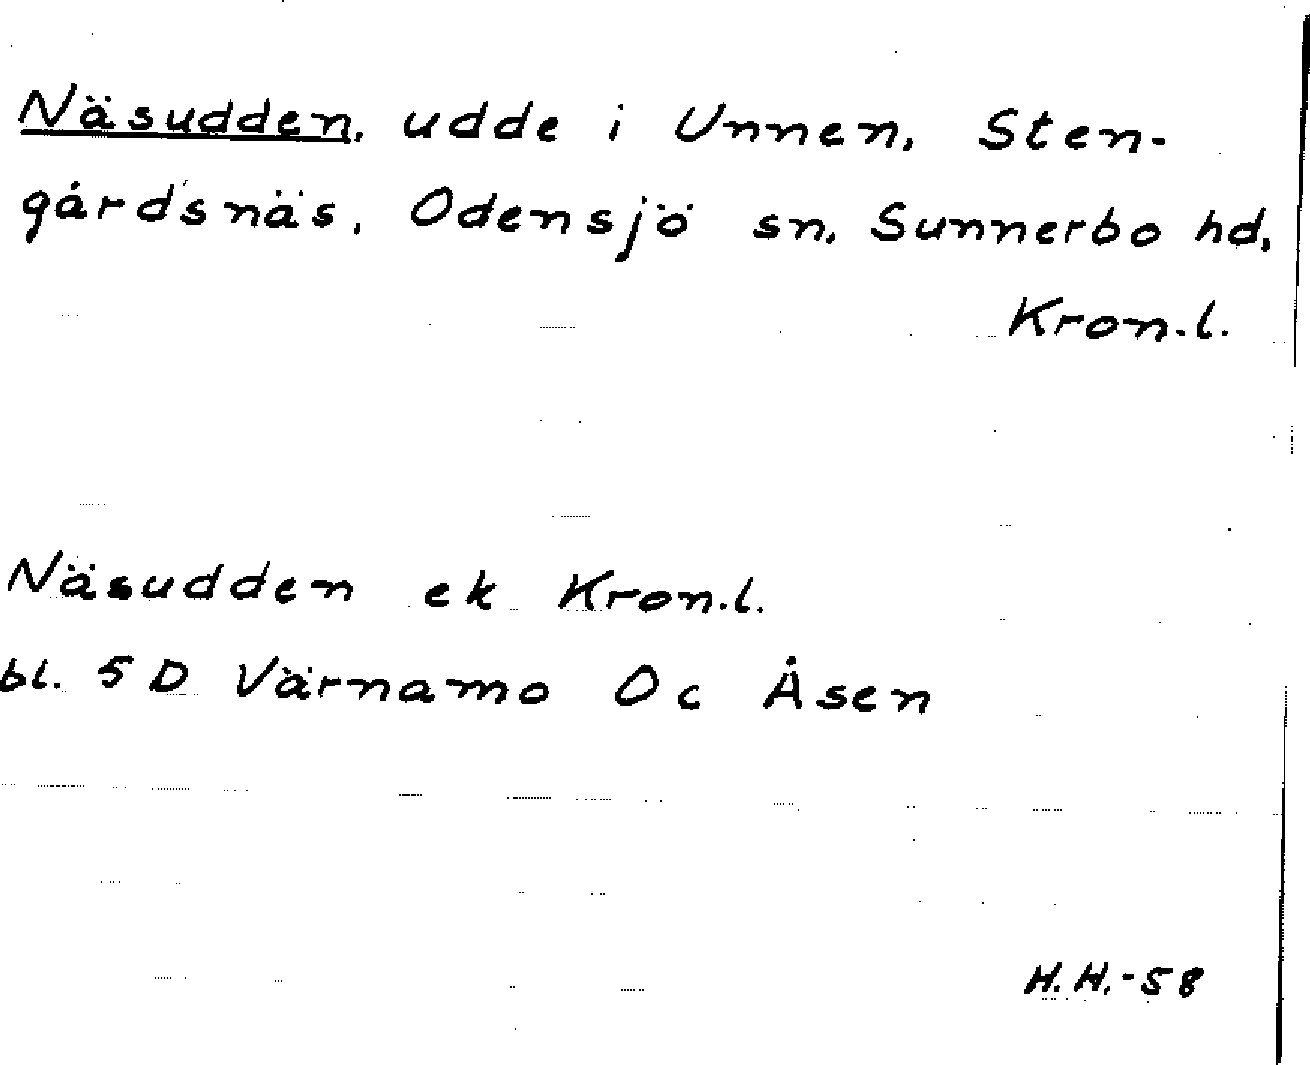 Näsudden, udde i Unnen, Sten-
gårdsnäs, Odensjö sn, Sunnerbo hd,
Kron.l.
Näsudden ek Kron.l.
bl. 5 D Värnamo Oc Åsen
H.H.-58